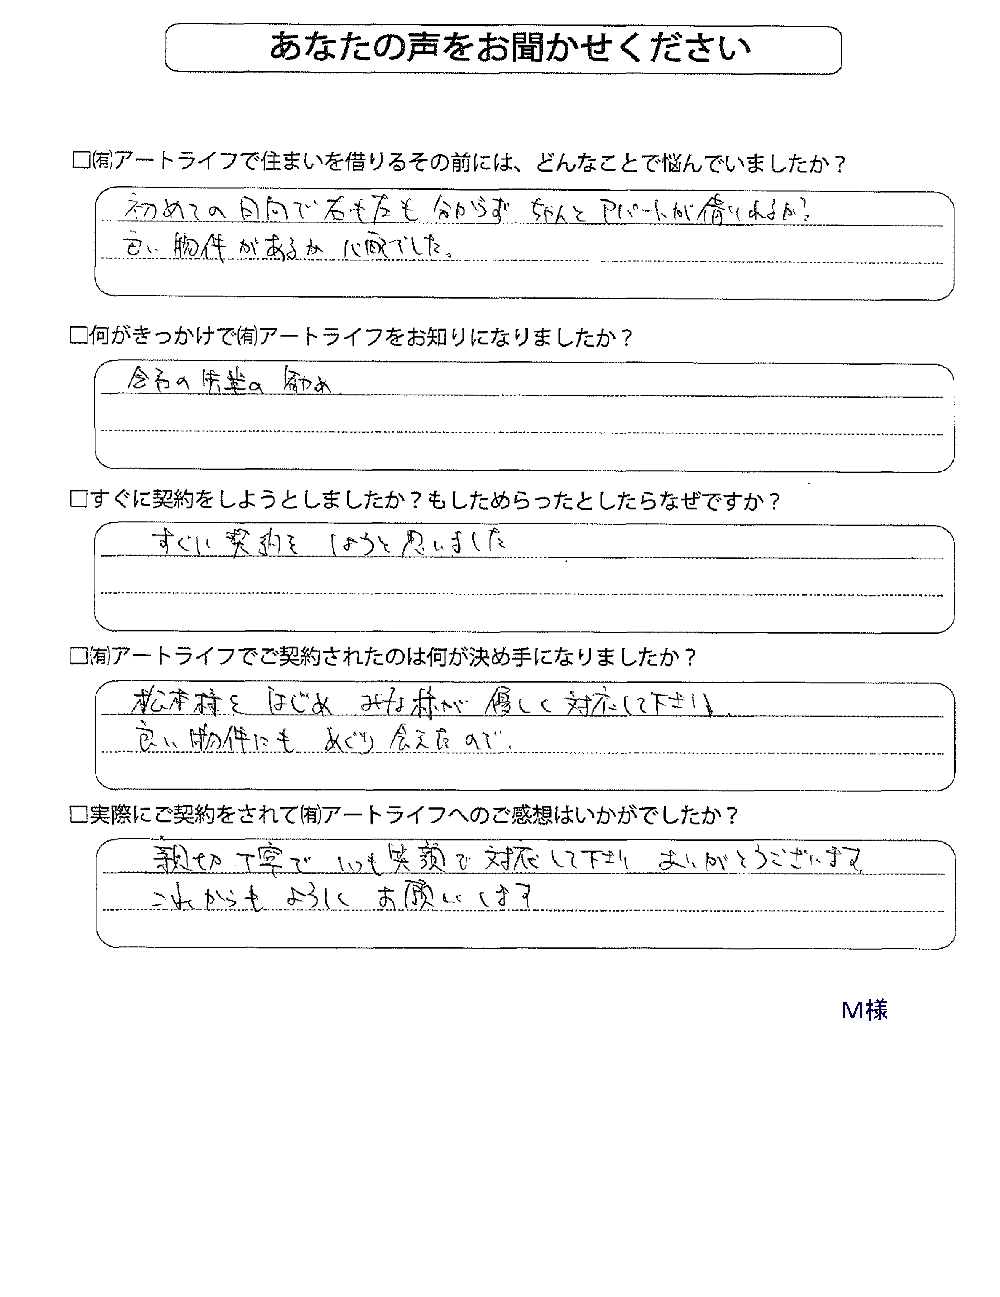 あなたの声をお聞かせください
□㈲アートライフで住まいを借りるその前には、どんなことで悩んでいましたか？
初めての日向で右も左も分からず ちゃんとアパートが借りれるか？
良い物件があるか心配でした。
□何がきっかけで㈲アートライフをお知りになりましたか？
会社の先輩の勧め
□すぐに契約をしようとしましたか？もしためらったとしたらなぜですか？
すぐに契約をしようと思いました
□㈲アートライフでご契約されたのは何が決め手になりましたか？
松本様をはじめ みな様が優しく対応して下さり、
良い物件にもめぐり会えたので。
□実際にご契約をされて㈲アートライフへのご感想はいかがでしたか？
親切丁寧でいつも笑顔で対応して下さり ありがとうございます
これからもよろしくお願いします
M様